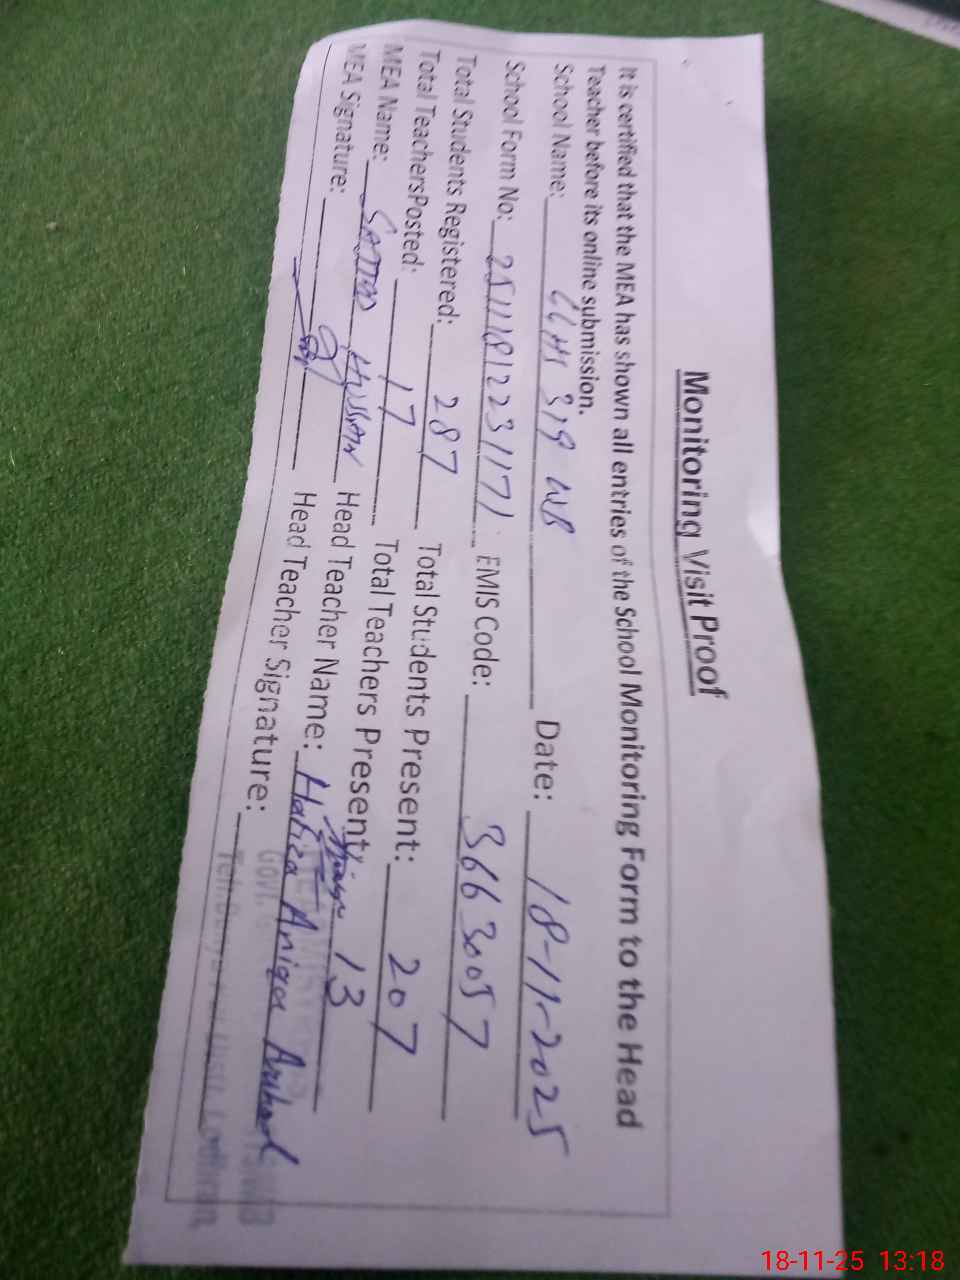 Monitoring Visit Proof
It is certified that the MEA has shown all entries of the School Monitoring Form to the Head
Teacher before its online submission.
School Name: 319 WB Date: 18-11-2025
School Form No: EMIS Code: 36630057
Total Students Registered: 287 Total Students Present: 207
Total TeachersPosted: 17 Total Teachers Present: 13
MEA Name: Sajjad Hussan Head Teacher Name: Hafiza Aniqa Arshad
MEA Signature: Head Teacher Signature:
18-11-25 13:18